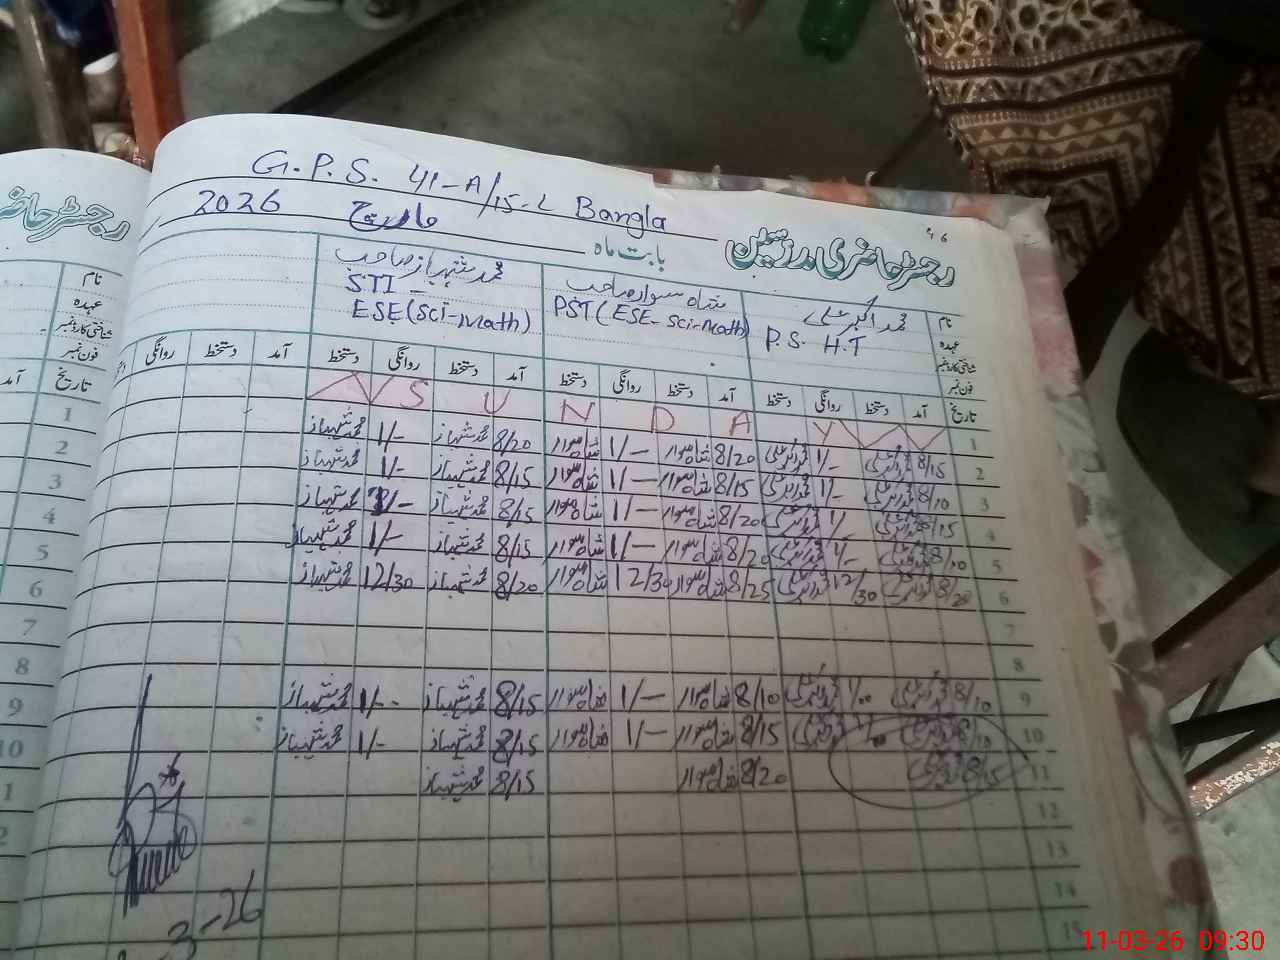 G.P.S. 41-A/15-L Bangla
46
رجسٹر حاضری مدرسین
بابت ماہ
مارچ
2026
نام
محمد اکبر علی
شاہ سوار صاحب
محمد شہباز صاحب
عہدہ
P.S.H.T
PST (ESE-Sci-Math)
STI -
ESE (Sci-Math)
شناختی کارڈ نمبر
فون نمبر
تاریخ آمد دستخط روانگی دستخط آمد دستخط روانگی دستخط آمد دستخط روانگی دستخط آمد دستخط روانگی
1 S U N D A Y
2 8/15 1/- 8/20 شاہ سوار 1/- شاہ سوار 8/20 محمد شہباز 1/- محمد شہباز
3 8/10 1/- 8/15 شاہ سوار 1/- شاہ سوار 8/15 محمد شہباز 1/- محمد شہباز
4 8/15 1/- 8/20 شاہ سوار 1/- شاہ سوار 8/15 محمد شہباز 1/- محمد شہباز
5 8/10 1/- 8/20 شاہ سوار 1/- شاہ سوار 8/15 محمد شہباز 1/- محمد شہباز
6 8/20 12/30 8/25 شاہ سوار 12/30 شاہ سوار 8/20 محمد شہباز 12/30 محمد شہباز
7
8
9 8/10 1/00 8/10 شاہ سوار 1/- شاہ سوار 8/15 محمد شہباز 1/- محمد شہباز
10 8/10 8/15 شاہ سوار 1/- شاہ سوار 8/15 محمد شہباز 1/- محمد شہباز
11 8/15 8/20 شاہ سوار 8/15 محمد شہباز
12
13
14
15
3-26
رجسٹر حاضری
نام
عہدہ
شناختی کارڈ نمبر
فون نمبر
تاریخ
آمد
1
2
3
4
5
6
7
8
9
10
11-03-26 09:30